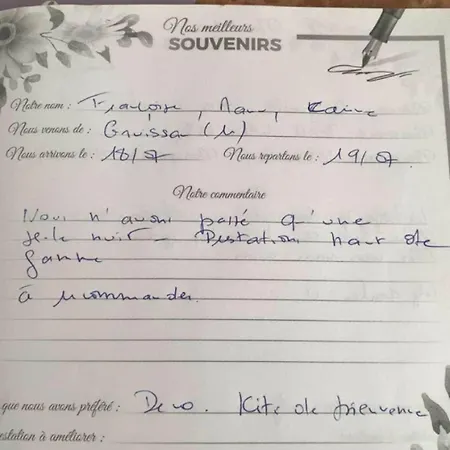 Nos meilleurs
SOUVENIRS
Notre nom : Françoise, Marc,
Nous venons de : Gruissan (11)
Nous arrivons le : 18/07 Nous repartons le : 19/07
Notre commentaire
Nous n'avons passé qu'une
seule nuit - Prestations haut de
gamme
à recommander.
que nous avons préféré : Deco. Kits de bienvenue
estation à améliorer :